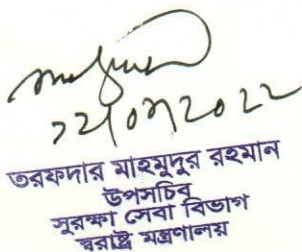 তরফদার মাহমুদুর রহমান
উপসচিব
সুরক্ষা সেবা বিভাগ
স্বরাষ্ট্র মন্ত্রণালয়